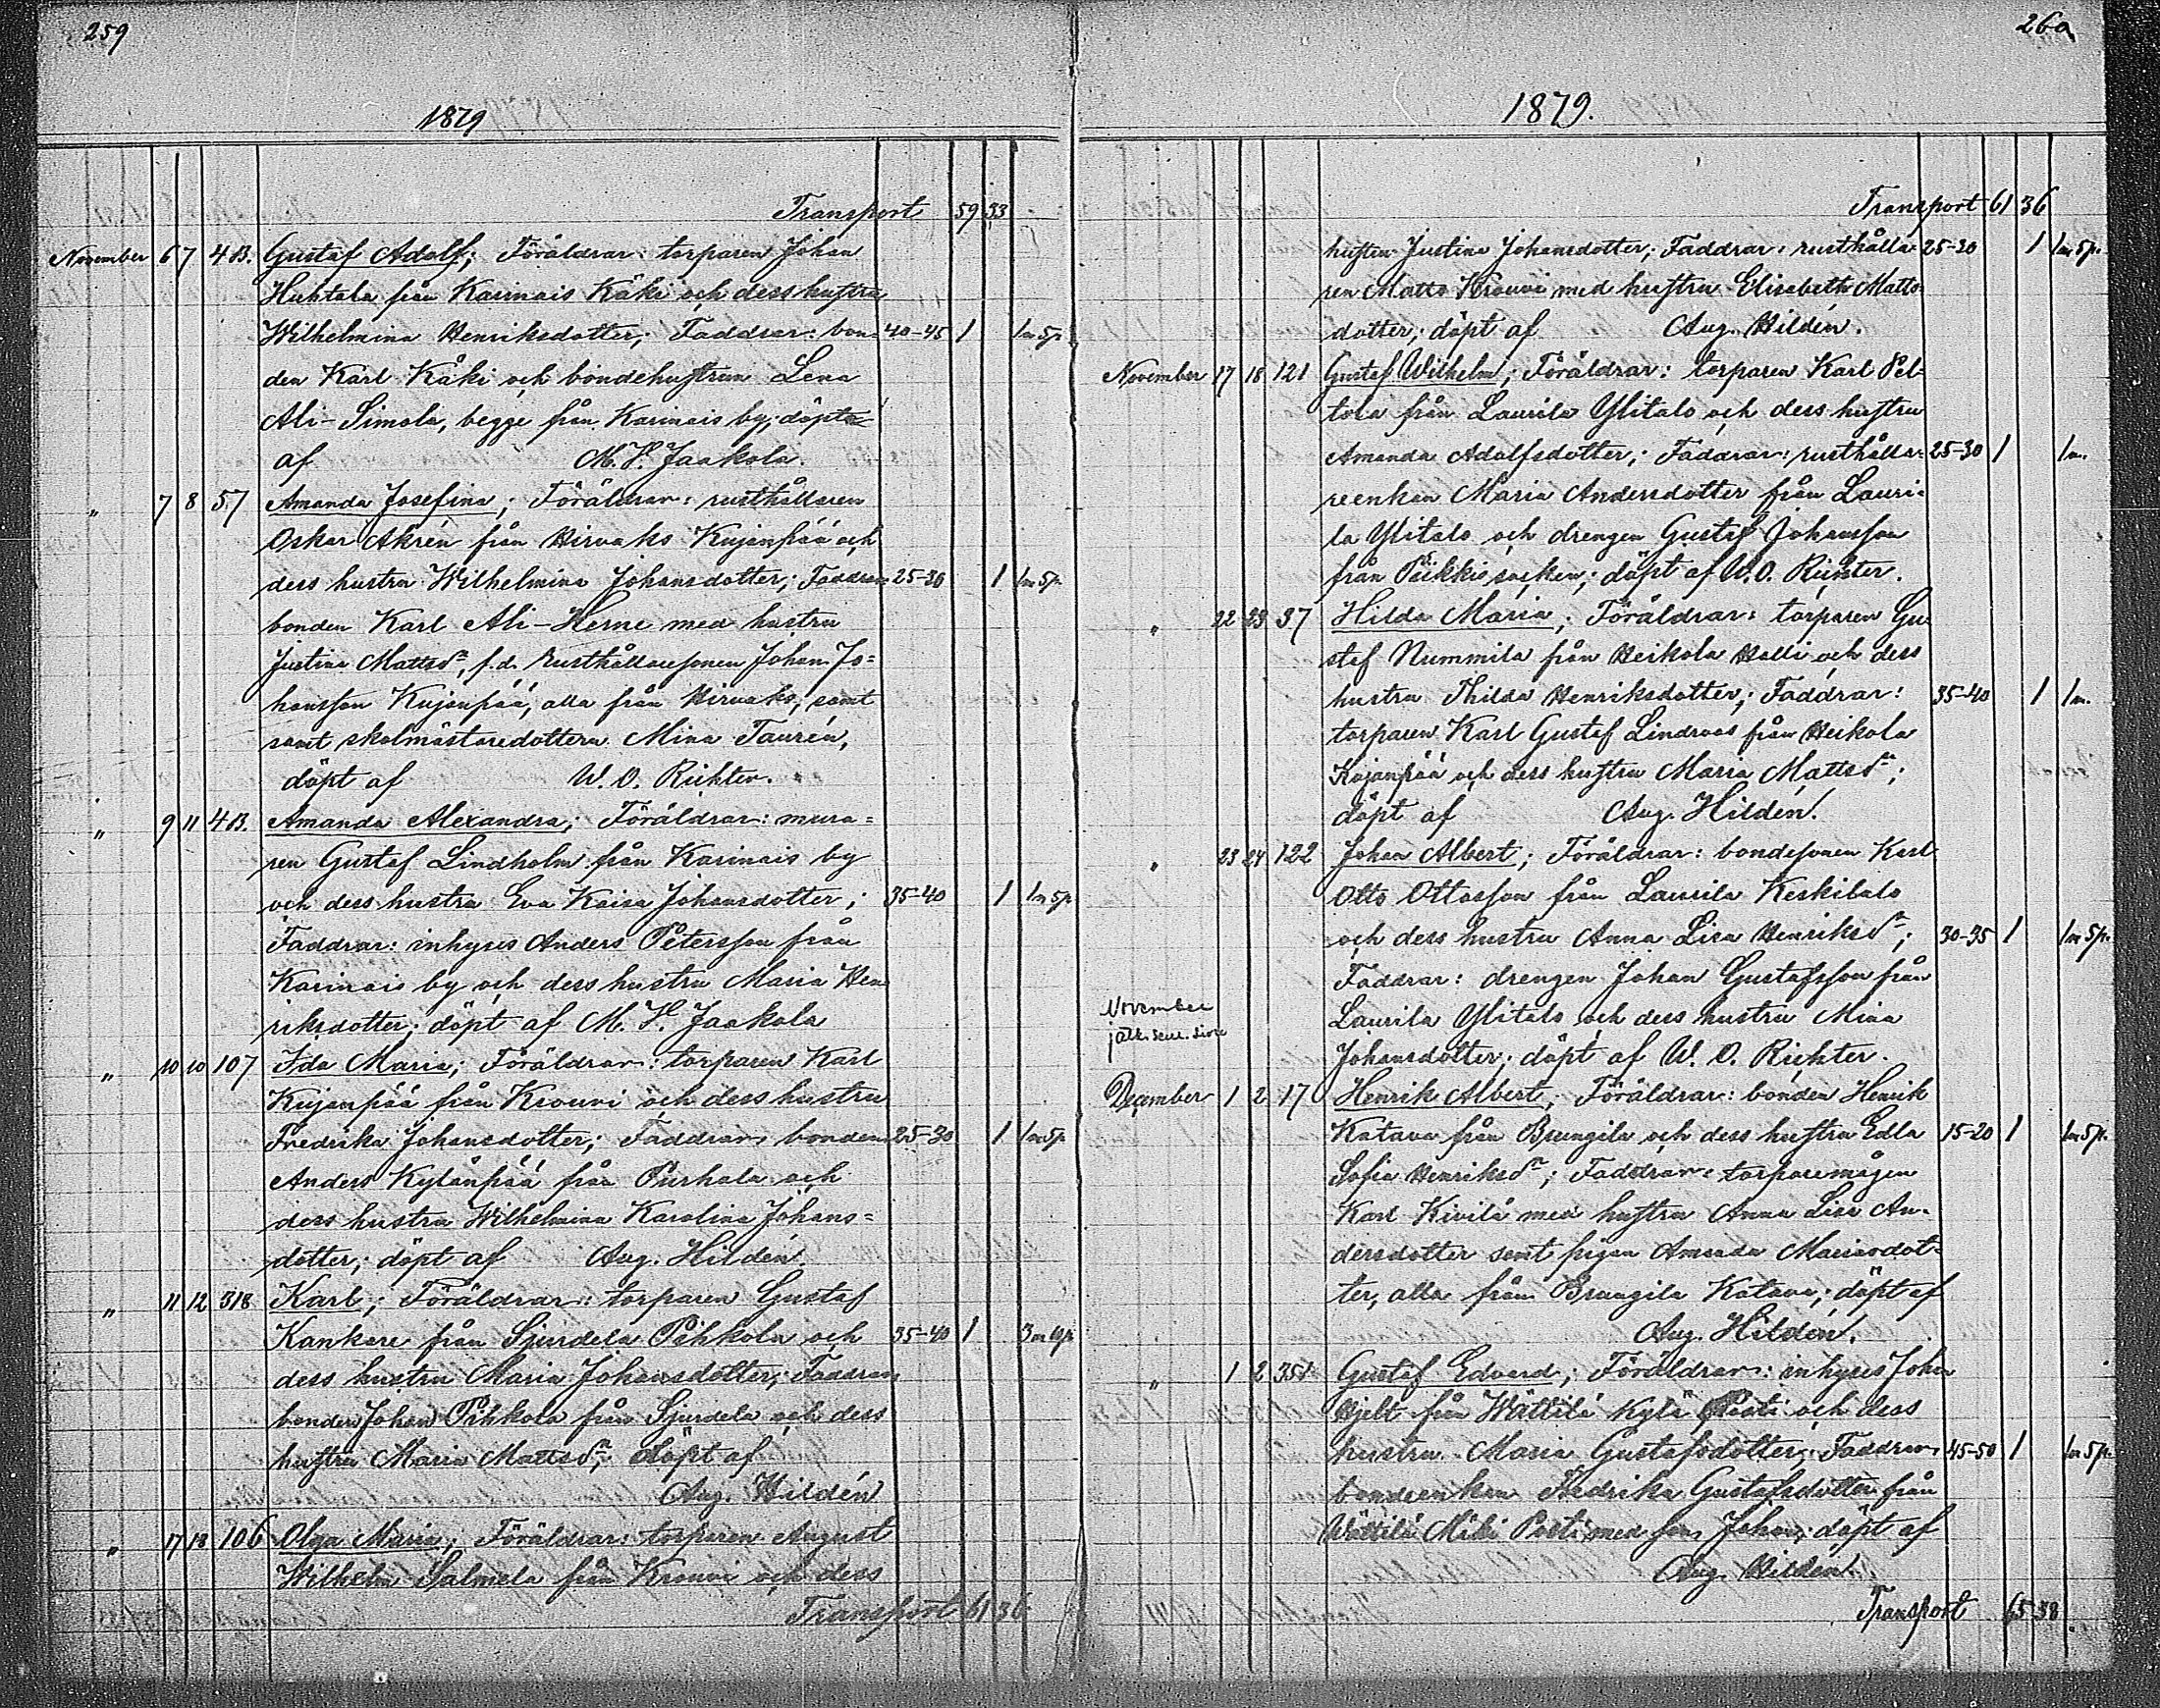 259
1879
Transport 59 33
November 6 7 4B. Gustaf Adolf; Föräldrar: torparen Johan
Huhtala från Karinais Käki och dess hustru
Wilhelmina Henriksdotter; Faddrar: bon- 40-45 1 1m 5p
den Karl Käki och bondehustrun Lena
Ali-Simola, begge från Karinais by; döpta
af M. H. Jaakola.
" 7 8 57 Amanda Josefina; Föräldrar: rusthållaren
Oskar Akrén från Hirvaks Kujanpää och
dess hustru Wilhelmina Johansdotter; Faddrar 25-30 1 1m 5p
bonden Karl Ali-Herne med hustru
Justina Mattsdr, f.d. rusthållaresonen Johan Jo=
hansson Kujanpää, alla från Hirvaks, samt
samt skolmästaredottern Mina Taurén,
döpt af W. O. Richter.
" 9 11 4B. Amanda Alexandra; Föräldrar: mura=
ren Gustaf Lindholm från Karinais by
och dess hustru Eva Kaisa Johansdotter; 35-40 1 1m 5p
Faddrar: inhyses Anders Petersson från
Karinais by och dess hustru Maria Hen
riksdotter; döpt af M. H. Jaakola
" 10 10 107 Ida Maria; Föräldrar: torparen Karl
Kujanpää från Krouvi och dess hustru
Fredrika Johansdotter; Faddrar: bonden 25-30 1 1m 5p
Anders Kylänpää från Purhala och
dess hustru Wilhelmina Karolina Johans=
dotter; döpt af Aug. Hildén.
" 11 12 318 Karl; Föräldrar: torparen Gustaf
Kankare från Sjurdela Pihkola och 35-40 1 3m 10p
dess hustru Maria Johansdotter; Faddrar
bonden Johan Pihkola från Sjurdela och dess
hustru Maria Mattsdr; Döpt af
Aug. Hildén
" 17 18 106 Olga Maria; Föräldrar: torparen August
Wilhelm Salmela från Krouvi och dess
Transport 61 36
260
1879.
Transport 61 36
hustru Justina Johansdotter; Faddrar: rusthålla- 25-30 1 1m 5p.
ren Matts Krouvi med hustru Elisabeth Matts
dotter; döpt af Aug. Hildén.
November 17 18 121 Gustaf Wilhelm; Föräldrar: torparen Karl Pel-
tola från Laurila Ylitalo och dess hustru
Amanda Adolfsdotter; Faddrar: rusthålla- 25-30 1 1m.
reenkan Maria Andersdotter från Lauri-
la Ylitalo och drengen Gustaf Johansson
från Peikkis socken; döpt af W. O. Richter.
" 22 23 37 Hilda Maria; Föräldrar: torparen Gu
staf Nummila från Heikola Halli och dess
hustru Thilda Henriksdotter; Faddrar: 35-40 1 1m.
torparen Karl Gustaf Lindroos från Heikola
Kujanpää och dess hustru Maria Mattsdr;
döpt af Aug. Hildén.
" 23 24 122 Johan Albert; Föräldrar: bondesonen Karl
Otto Ottosson från Laurila Keskitalo
och dess hustru Anna Lisa Henriksdr; 30-35 1 1m 5p.
Faddrar: drengen Johan Gustafsson från
November
Laurila Ylitalo och dess hustru Mina
jatk. seur. sivu
Johansdotter; döpt af W. O. Richter.
December 1 2 17 Henrik Albert; Föräldrar: bonden Henrik
Katava från Brungila och dess hustru Edla 15-20 1 1m 5p.
Sofia Henriksdr; Faddrar: torparemågen
Karl Kivilä med hustru Anna Lisa An-
dersdotter samt pigan Amanda Mariasdot-
ter, alla från Brungila Katava; döpt af
Aug. Hildén.
" 1 2 351 Gustaf Edvard; Föräldrar: inhyses Johan
Hjelt från Wättilä Kylä Posti och dess
hustru Maria Gustafsdotter; Faddrar 45-50 1 1m 5p.
bondeenkan Fredrika Gustafsdotter från
Wättilä Mäki Posti med son Johan; döpt af
Aug. Hildén.
Transport 65 38